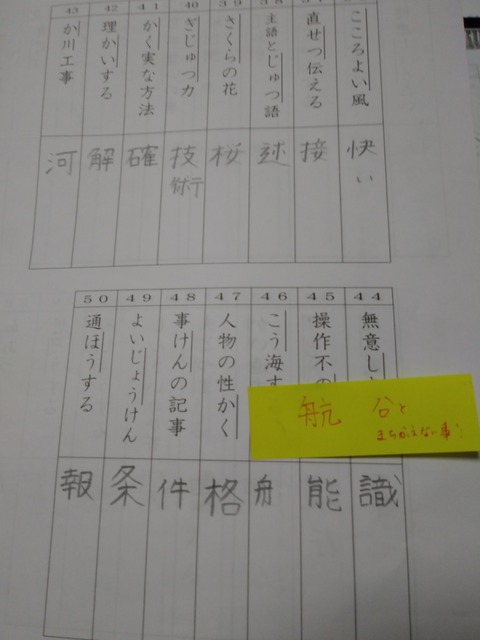 こころよい風
直せつ伝える
主語とじゅつ語
さくらの花
ぎじゅつ力
かく実な方法
理かいする
か川工事
39
40
41
42
43
快い
接
述
桜
技術
確
解
河
44
45
46
47
48
49
50
無意し
操作不の
こう海す
人物の性かく
事けんの記事
よいじょうけん
通ほうする
航 谷と
まちがえない事!
識
能
舟
格
件
条
報